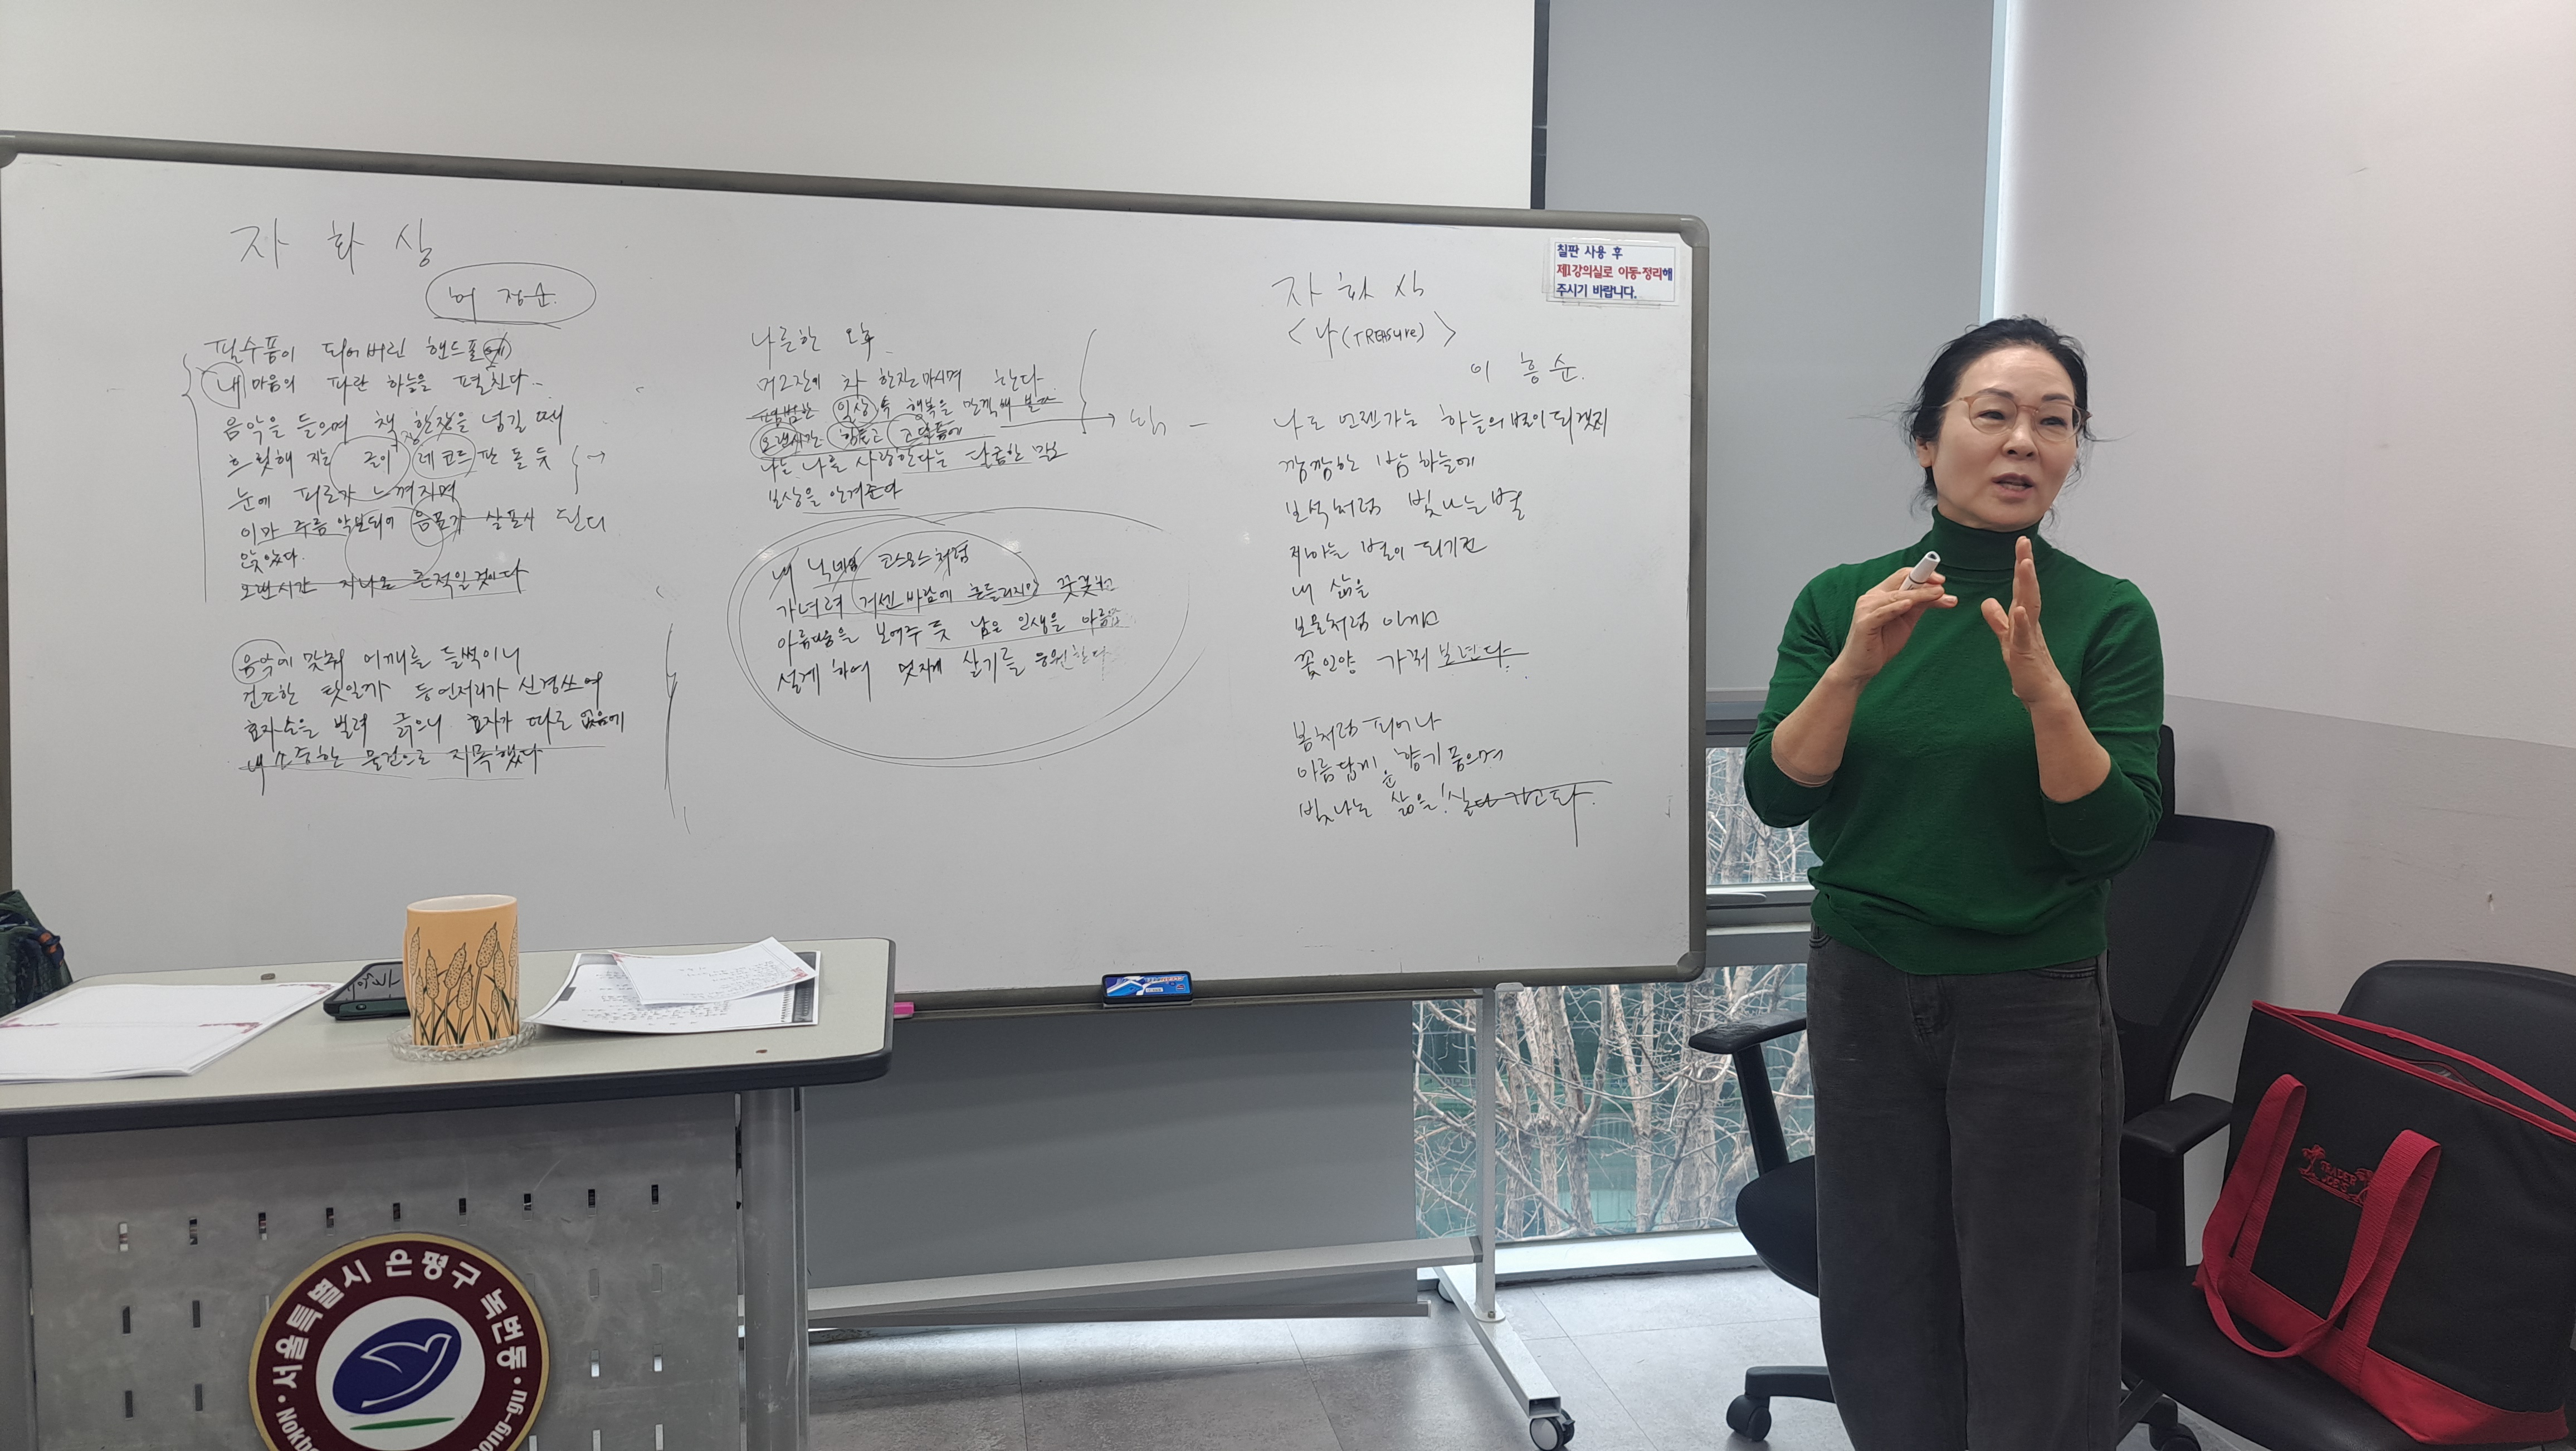 자 화 상
허 정순.
필수품이 되어버린 핸드폰
내 마음의 파란 하늘을 펼친다..
음악을 들으며 책 한장을 넘길 때
흐릿해 지는 글이 레코드 판 돌 듯
눈에 피로가 느껴지며
이마 주름 악보되어 음표가 살포시
앉았다.
오랜시간 지나온 흔적일것이다
음악에 맞춰 어깨를 들썩이니
건조한 탓일까 등언저리가 신경쓰여
효자손을 빌려 긁으니 효자가 따로 없음에
내 소중한 물건으로 지목했다
나른한 오후
머그잔에 차 한잔 마시며 한다
평범한 일상 속 행복을 만끽해 본다
오랜시간 힘들고 고단함에
나는 나를 사랑한다는 달콤한 말로
보상을 안겨준다
내 닉네임 코스모스처럼
가녀려 거센 바람에 흔들리지만 꿋꿋한
아름다움을 보여주 듯 남은 인생을
설계 하여 멋지게 살기를 응원한다
자 화 상
< 나 (TREASURE) >
이 흥 순.
나도 언젠가는 하늘의 별이 되겠지
깜깜한 밤 하늘에
보석처럼 빛나는 별
저하늘 별이 되기전
내 삶을
보물처럼 아끼고
꽃인양 가꿔 보련다.
봄처럼 피어나
아름답게 향기 품으며
빛나는 삶을! 살다 가고프다.
칠판 사용 후
제1강의실로 이동·정리해
주시기 바랍니다.
서울특별시 은평구 녹번동
TRADER
JOE'S